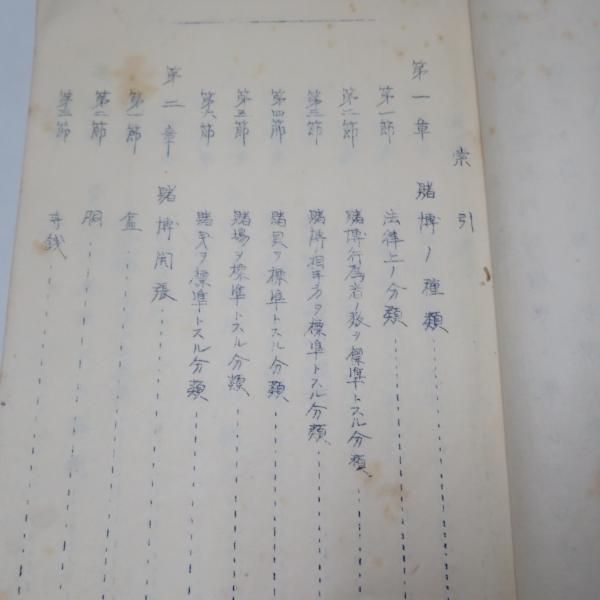 索引
第一章 賭博ノ種類
第一節 法律上ノ分類
第二節 賭博行為者ノ数ヲ標準トスル分類
第三節 賭博相手方ヲ標準トスル分類
第四節 賭具ヲ標準トスル分類
第五節 賭場ヲ標準トスル分類
第六節 賭ヲ標準トスル分類
第二章 賭博開張
第一節 盆
第二節 胴
第三節 寺銭